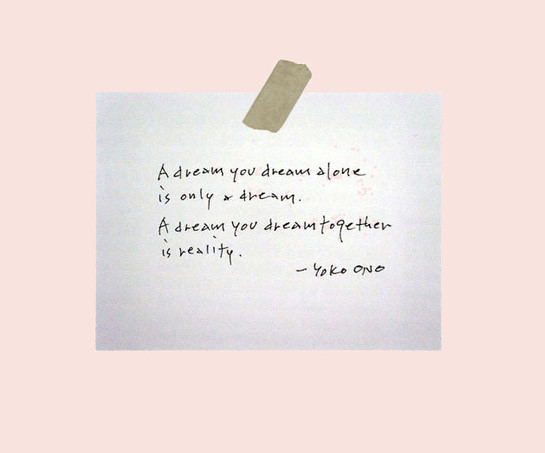 A dream you dream alone
is only a dream.
A dream you dream together
is reality.
- YOKO ONO